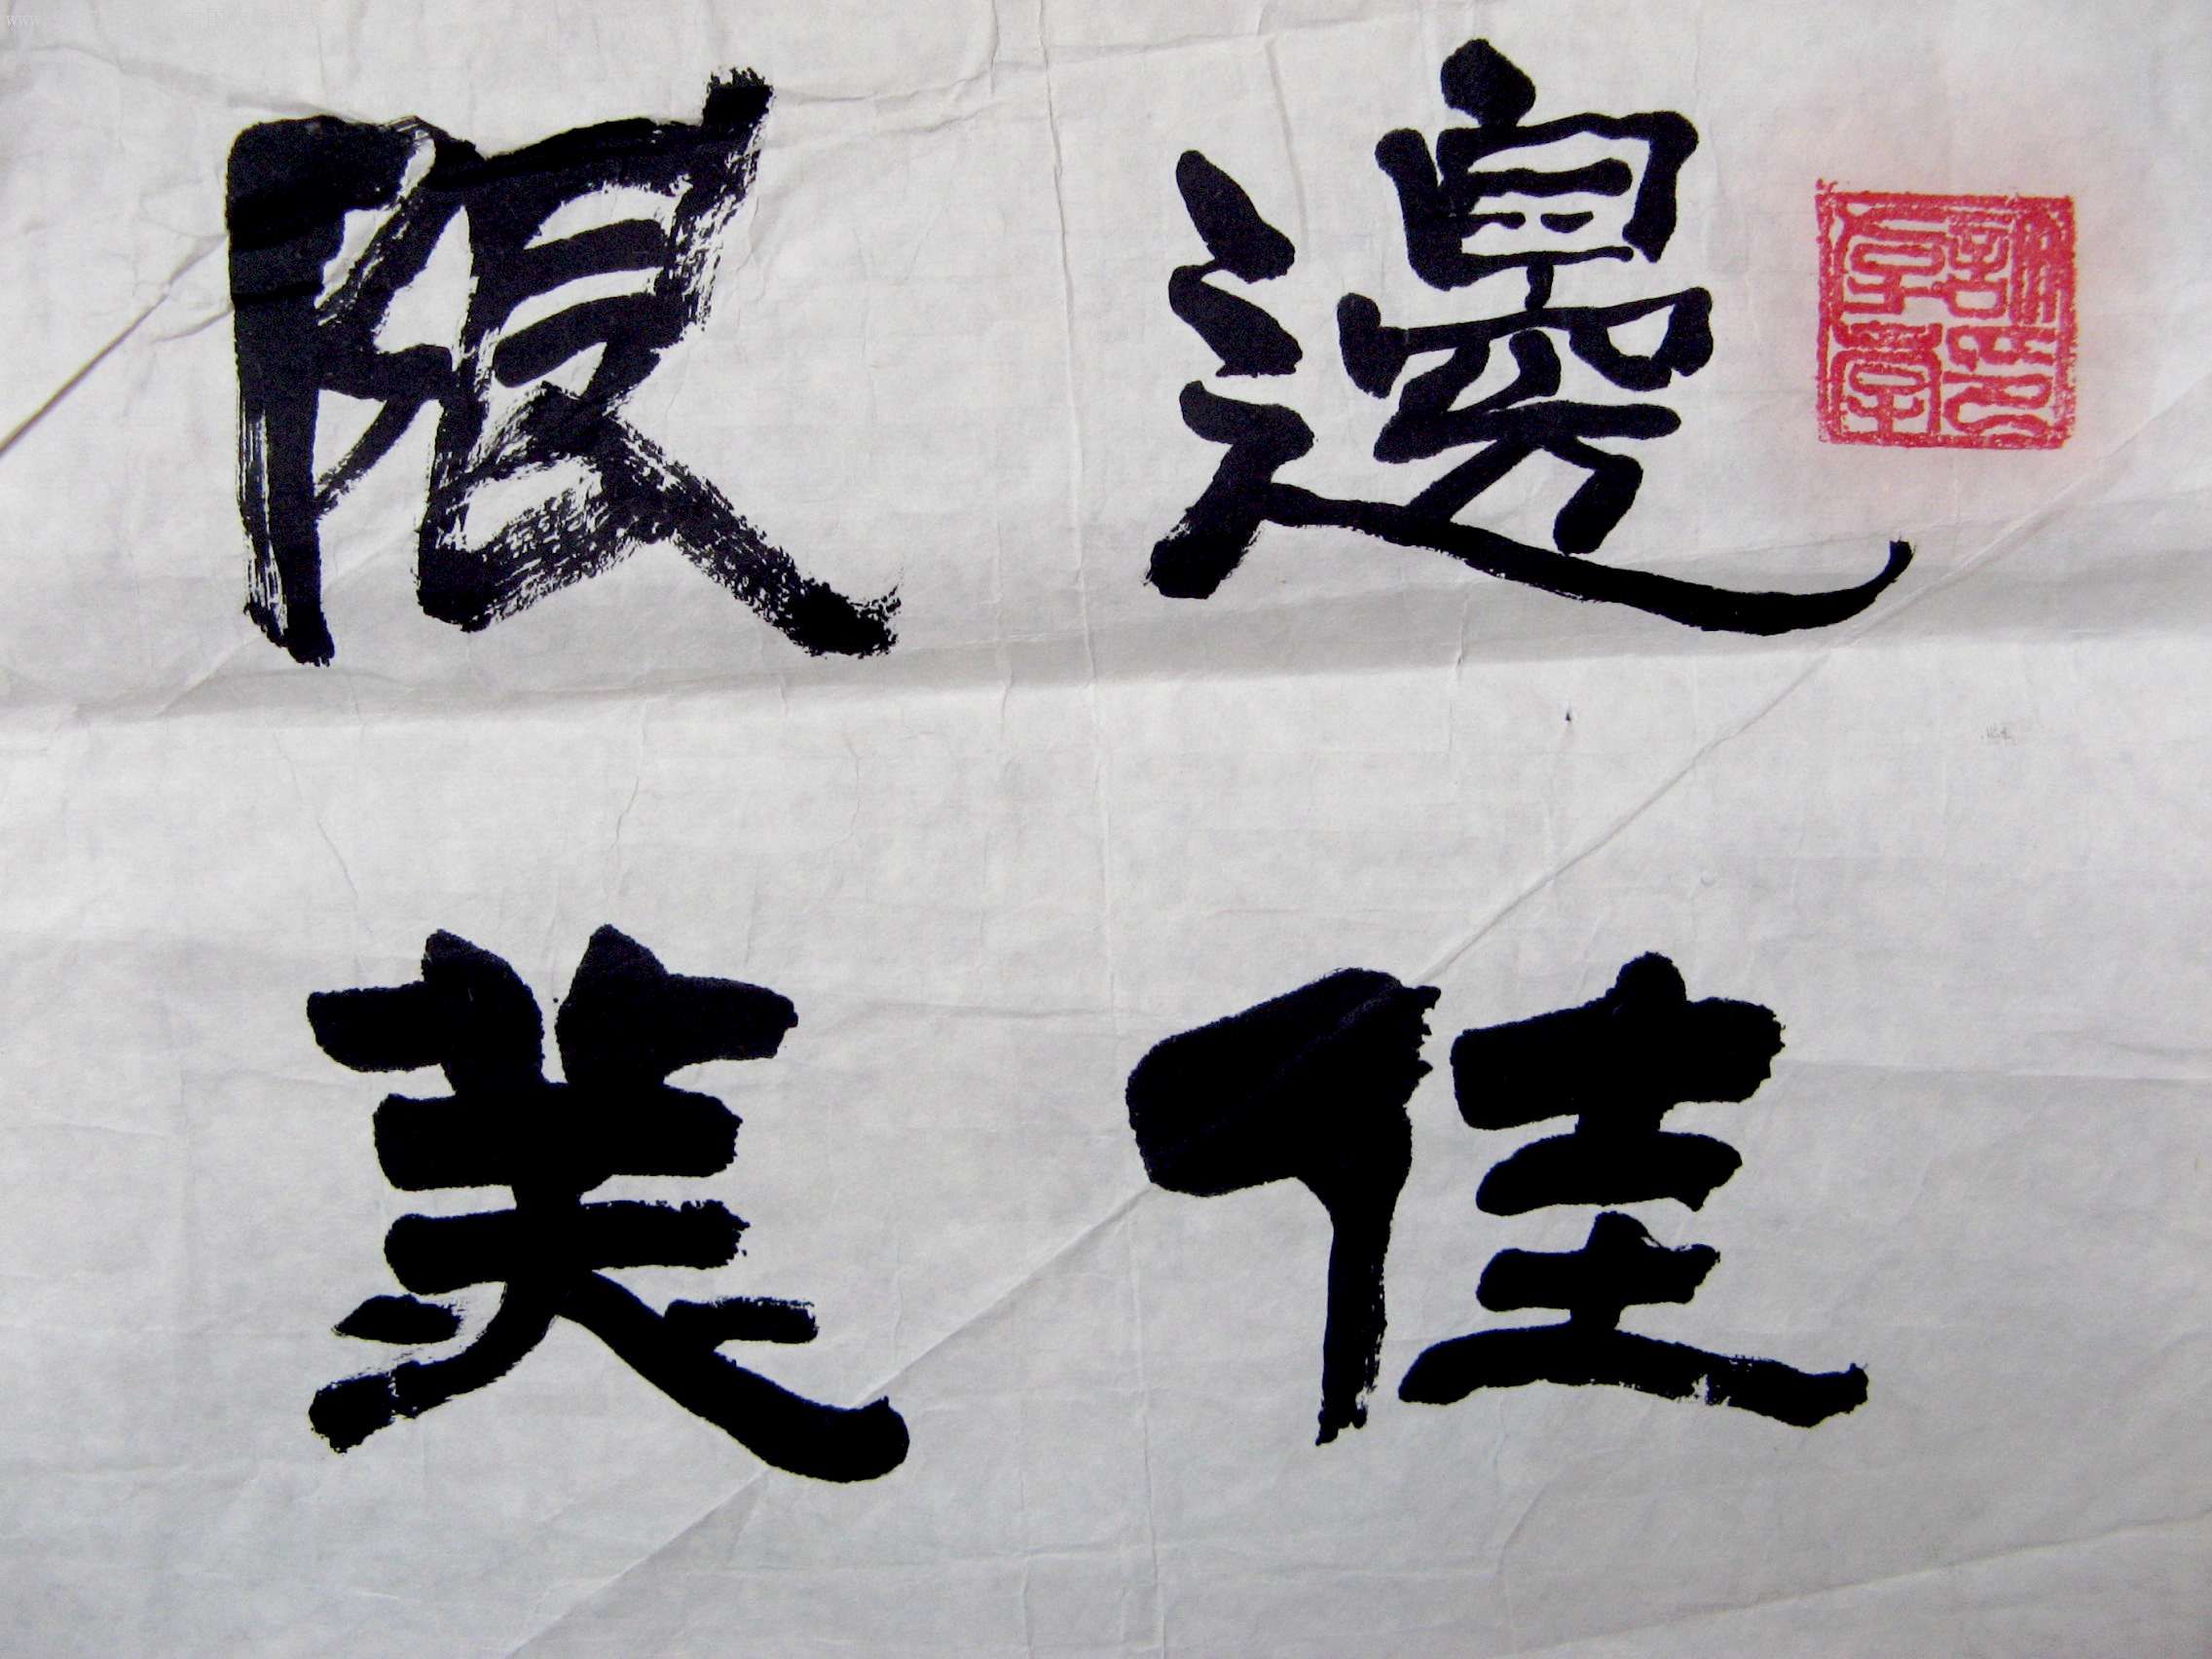 邊佳
限美